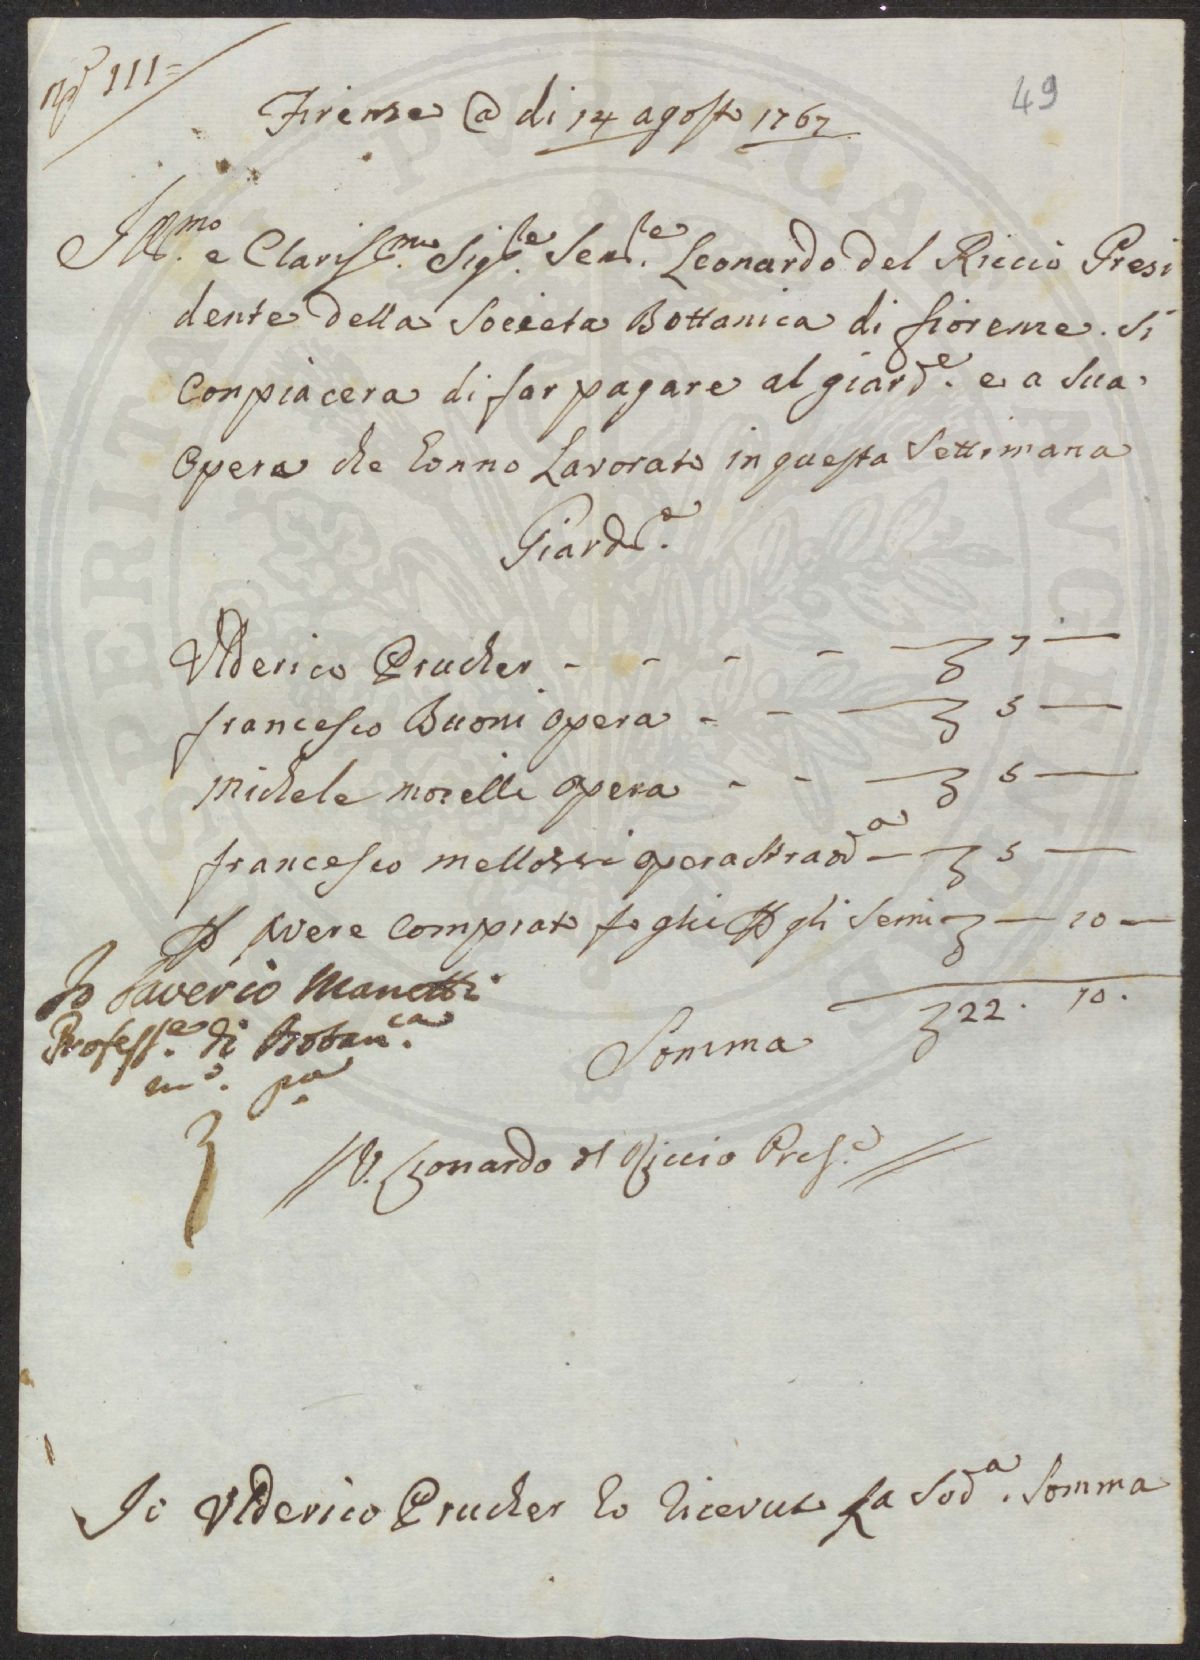 N° III=
49
Firense @ di 14 agosto 1767
Ill.mo e Clariss.mo Sig.le Sen.le Leonardo del Riccio Presi
dente della Società Bottanica di fiorense. Si
Conpiacera di far pagare al giard.e e a Sua
Opera che Honno Lavorato in questa Settimana
Giard.e
Vlderico Prucher - - - - 7 —
francesco Buoni opera - - 5 —
Michele morelli opera - - 5 —
francesco mellossi opera Straod.a 5 —
P avere Comprato fo glii P gli Semi — 10 —
Somma 22. 10.
Io Saverio Manetti
Profess.e di Botan.ca
m.o p.a
V. Leonardo del Riccio Pres.e
Io Vlderico Prucher Ho Ricevuto La Sod.a Somma